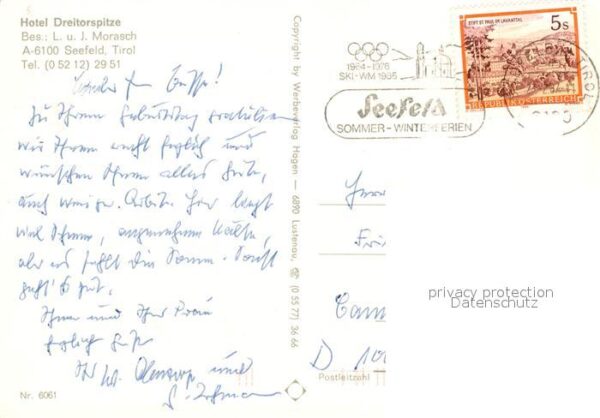 Hotel Dreitorspitze
Bes.: L. u. J. Morasch
A-6100 Seefeld, Tirol
Tel. (0 52 12) 29 51
Zu Ihrem Geburtstag gratulieren
wir Ihnen recht herzlich und
wünschen Ihnen alles Gute,
auch weniger Arbeit. Hier liegt
viel Schnee, angenehme Kälte,
aber es fehlt die Sonne. Sonst
geht's gut.
Ihnen und Ihrer Frau
herzliche Grüße
Ihr und
Nr. 6061
Copyright by Werbeverlag Hagen — 6890 Lustenau, ☏ (0 55 77) 36 66
1964-1976
SKI-WM 1985
Seefeld
SOMMER-WINTERFERIEN
STIFT ST. PAUL IM LAVANTTAL
5s
REPUBLIK ÖSTERREICH
TIROL
6100
Herrn
D
Postleitzahl
privacy protection
Datenschutz